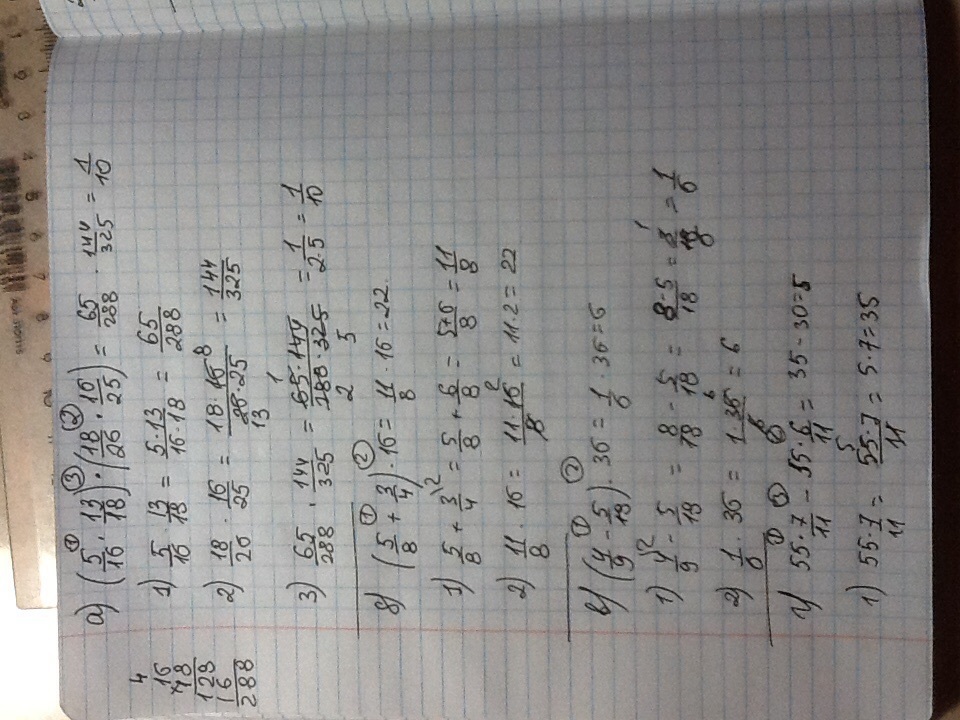 а) (5/16 · 13/18) · (18/26 · 16/25) = 65/288 · 144/325 = 1/10
1) 5/16 · 13/18 = 5·13/16·18 = 65/288
2) 18/26 · 16/25 = 18·16/26·25 = 144/325
8
13
3) 65/288 · 144/325 = 65·144/288·325 = 1/2·5 = 1/10
1
2 5
4
16
18
128
16
288
б) (5/8 + 3/4) · 16 = 11/8 · 16 = 22.
1) 5/8 + 3/4 = 5/8 + 6/8 = 5+6/8 = 11/8
2) 11/8 · 16 = 11·16/8 = 11·2 = 22
в) (4/9 - 5/18) · 36 = 1/6 · 36 = 6
1) 4/9 - 5/18 = 8/18 - 5/18 = 8-5/18 = 3/18 = 1/6
2) 1/6 · 36 = 1·36/6 = 6
г) 55·7/11 - 55·6/11 = 35 - 30 = 5
1) 55·7/11 = 55·7/11 = 5·7 = 35